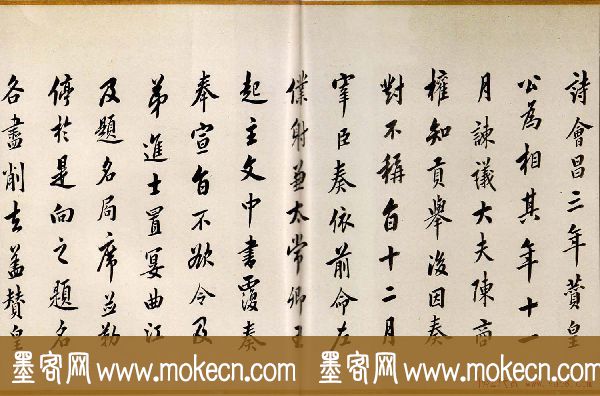 詩會昌三年贊皇
公為相其年十一
月諫議大夫陳商
權知貢舉後因奏
對不稱旨十二月
宰臣奏依前命左
僕射兼太常卿王
起主文中書覆奏
奉宣旨不欲令及
第進士置宴曲江
及題名局席並勒
停於是向之題名
各盡削去蓋贊皇
墨客网 www.mokecn.com 墨客网 www.mokecn.com